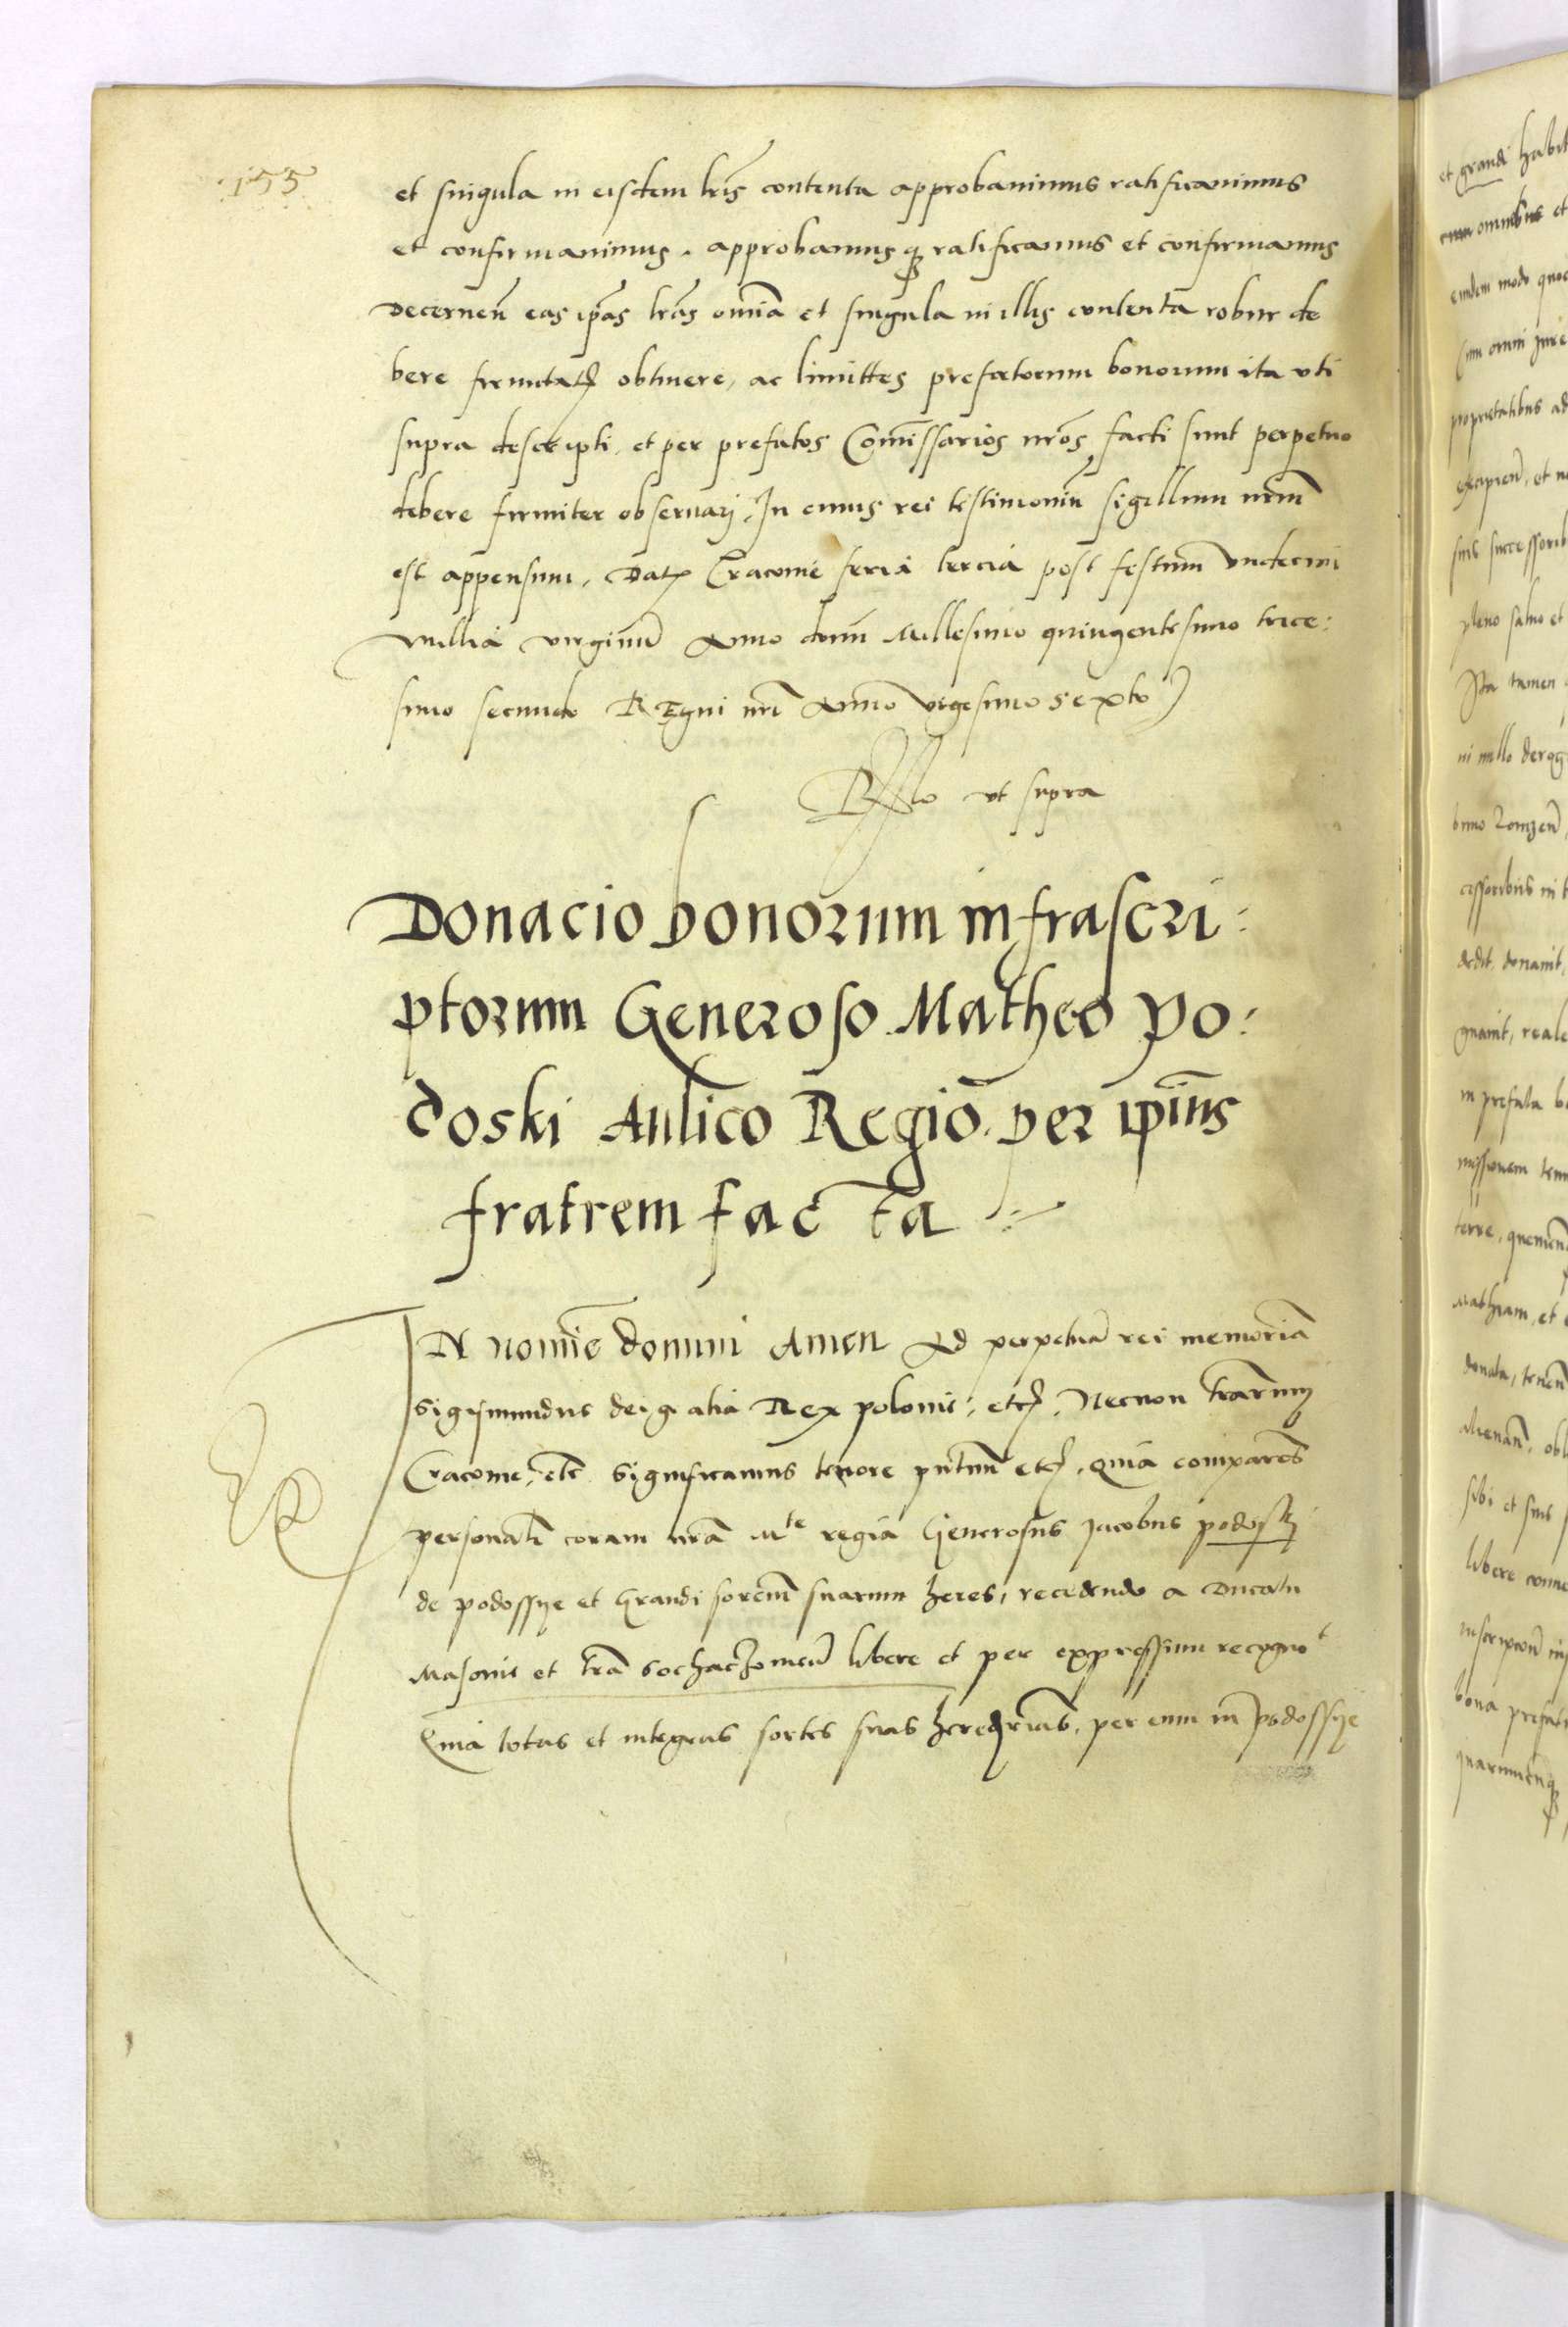 155
et singula in eisdem lr̃is contenta approbauimus ratificauimus
et confirmauimus. approbamusq; ratificamus et confirmamus
Decernen̄ eas ip̄as lr̃as om̄ia et singula in illis contenta robur de
bere firmitatis obtinere, ac limittes prefatorum bonorum ita vti
supra descripti, et per prefatos Com̄issarios nr̃os, facti sunt perpetuo
debere firmiter obseruarj. In cuius rei testimoniū sigillum nr̃m
est appensum, Datum Cracouie feria tercia post festum vndecim
millia virginū Anno domī Millesimo quingentesimo trice:
simo secundo REgni nr̃i Anno vigesimo sexto
Rełło vt supra
Donacio bonorum infrascri:
ptorum Generoso Matheo Po:
doski Aulico Regio. per ip̄ius
fratrem facta
IN nomīe domini Amen Ad perpetuā rei memoriā
Sigismundus dei gratia Rex polonie, etc. Necnon tr̃arum
Cracouie, etc significamus tenore pn̄tium etc. quia comparēs
personalr̄ coram nr̃a Mte regia Generosus Jacobus podoskj
de podossye et Grandi sorciū suarum heres, recedendo a Ducatu
Masouie et tr̃a sochaczouien̄ libere et per expressum recognot
Quia totas et integras sortes suas heredr̄ias, per eum in Podossye
et grandi
omnibus et
eisdem modo
Cum omni jure
proprietatibus
excipien̄, et
suis
pleno
Ita tamen
in nullo
dedit, donauit,
in prefata
terre,
Mathiam, et
donata, tenen̄
sibi et suis
libere
bona